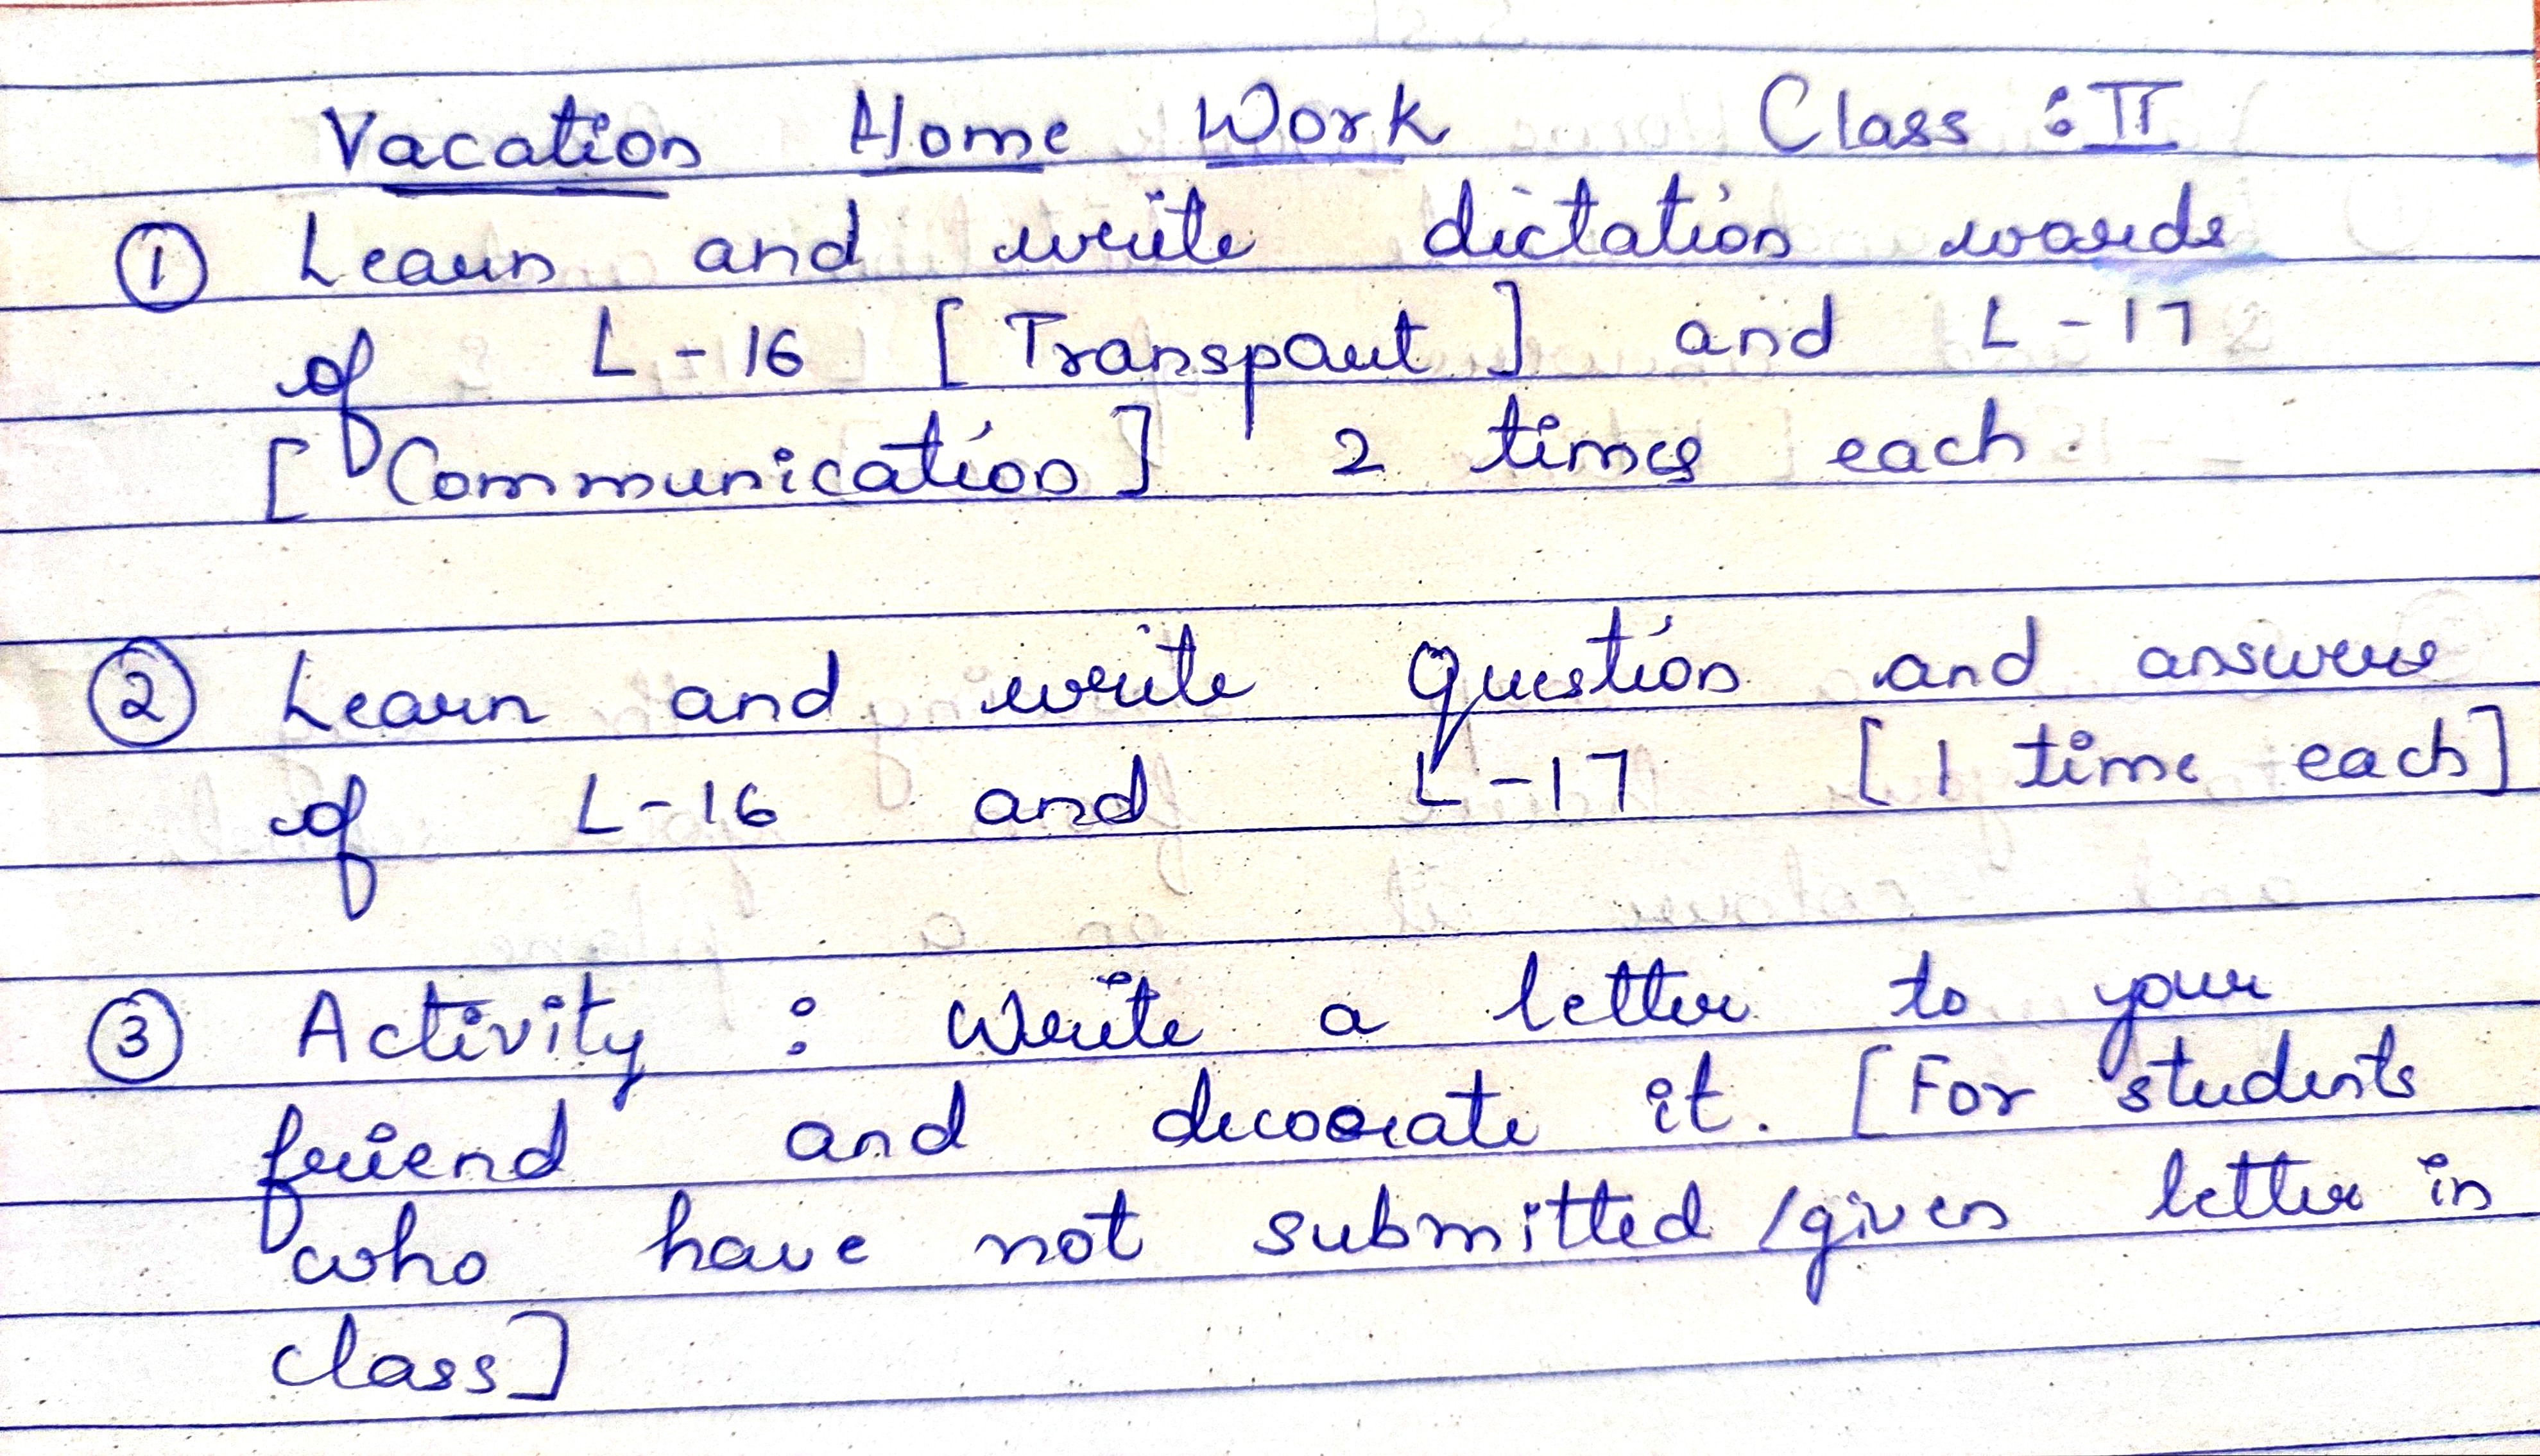 Vacation Home Work Class : II
① Learn and write dictation words
of L-16 [Transport] and L-17
[Communication] 2 times each.
② Learn and write Question and answers
of L-16 and L-17 [1 time each]
③ Activity : Write a letter to your
friend and decorate it. [For students
who have not submitted/given letter in
class]